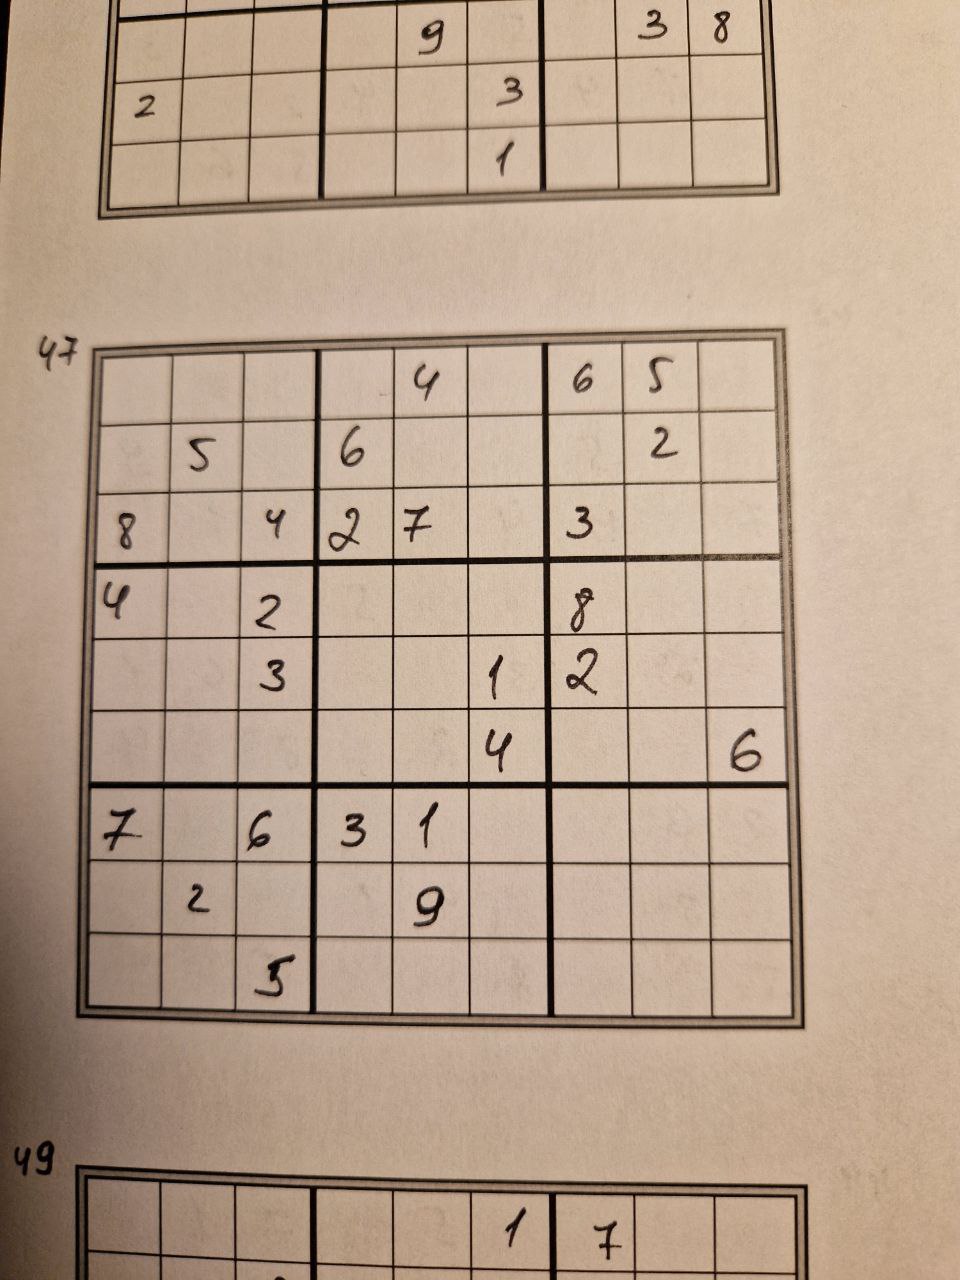 9 3 8
2 3
1
47
4 6 5
5 6 2
8 4 2 7 3
4 2 8
3 1 2
4 6
7 6 3 1
2 9
5
49
1 7